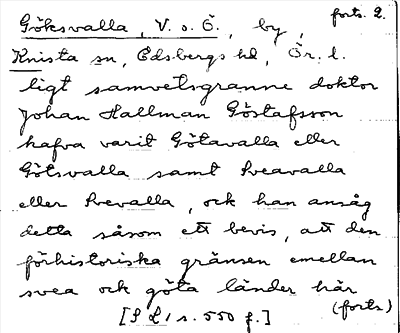 forts. 2.
Göksvalla, V. o. Ö., by,
Knista sn, Edsbergs hd, Ör. l.
ligt samvetsgranne doktor
Johan Hallman Göstafsson
hafva varit Götavalla eller
Götsvalla samt Sveavalla
eller Svevalla, och han ansåg
detta såsom ett bevis, att den
förhistoriska gränsen emellan
svea och göta länder här
(forts)
[S L 1 s. 550 f.]